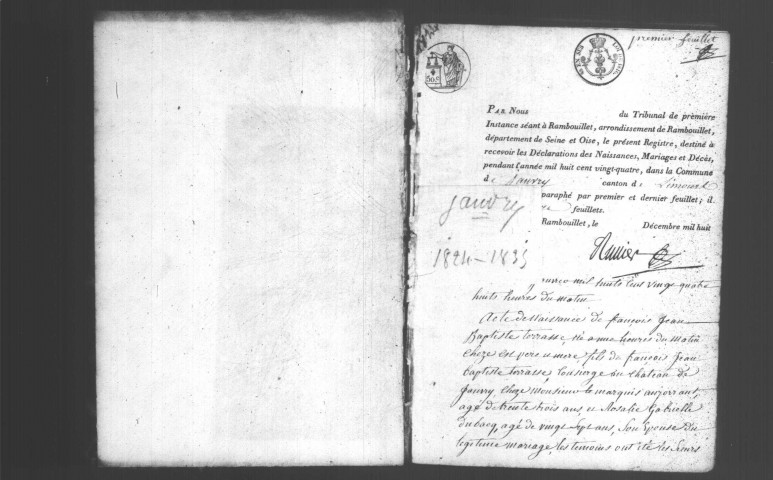 premier feuillet
50c
PAR NOUS du Tribunal de première
Instance séant à Rambouillet, arrondissement de Rambouillet,
département de Seine et Oise, le présent Registre, destiné à
recevoir les Déclarations des Naissances, Mariages et Décès,
pendant l'année mil huit cent vingt-quatre, dans la Commune
de Janvry canton de Limours
paraphé par premier et dernier feuillet; il
feuillets.
Rambouillet, le Décembre mil huit
Janvry
1824-1835
mil huits Cens vingt quatre
huits heures du matin
Acte de Naissance de françois Jean
Baptiste terrasse, né a une heures du matin
Cheze ses pere et mere fils de françois Jean
baptiste terrasse, Consierge au chateau de
Janvry Cheze monsieur le marquis anjorrant,
agé de trente trois ans et Rosalie Gabrielle
dubacq, agé de vingt sept ans, Son Epouse du
legitime mariage, les temoins ont été les sieurs